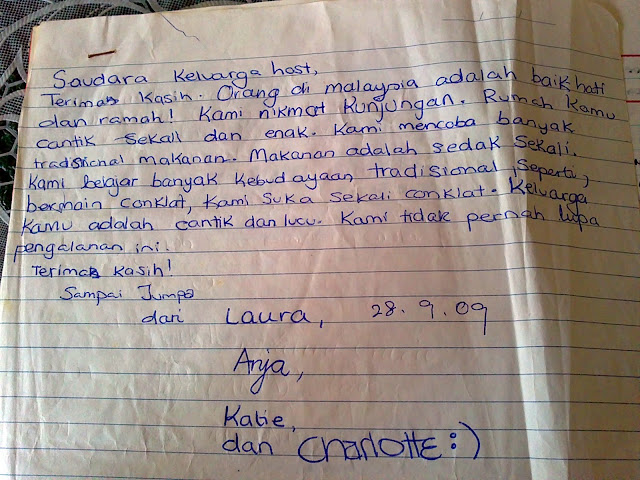 Saudara Keluarga host,
Terimah Kasih. Orang di malaysia adalah baik hati
dan ramah! Kami nikmat Kunjungan. Rumah Kamu
cantik sekali dan enak. Kami mencoba banyak
traditional makanan. Makanan adalah sedak sekali.
Kami belajar banyak Kebudayaan tradisional, seperti,
bermain conklat, Kami suka sekali conklat. Keluarga
Kamu adalah cantik dan lucu. Kami tidak pernah lupa
pengalanan ini.
Terimah Kasih!
Sampai Jumpa
dari Laura, 28.9.09
Anja,
Katie,
dan Charlotte :)